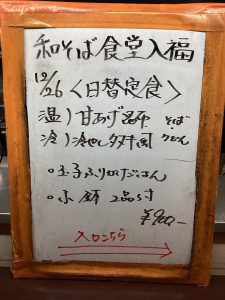 和そば食堂入福
12/26 <日替定食>
温)甘あげ
そば
冷)冷やし
うどん
。玉子ふりかけごはん
。小鉢 2品付
¥900-
入口こちら